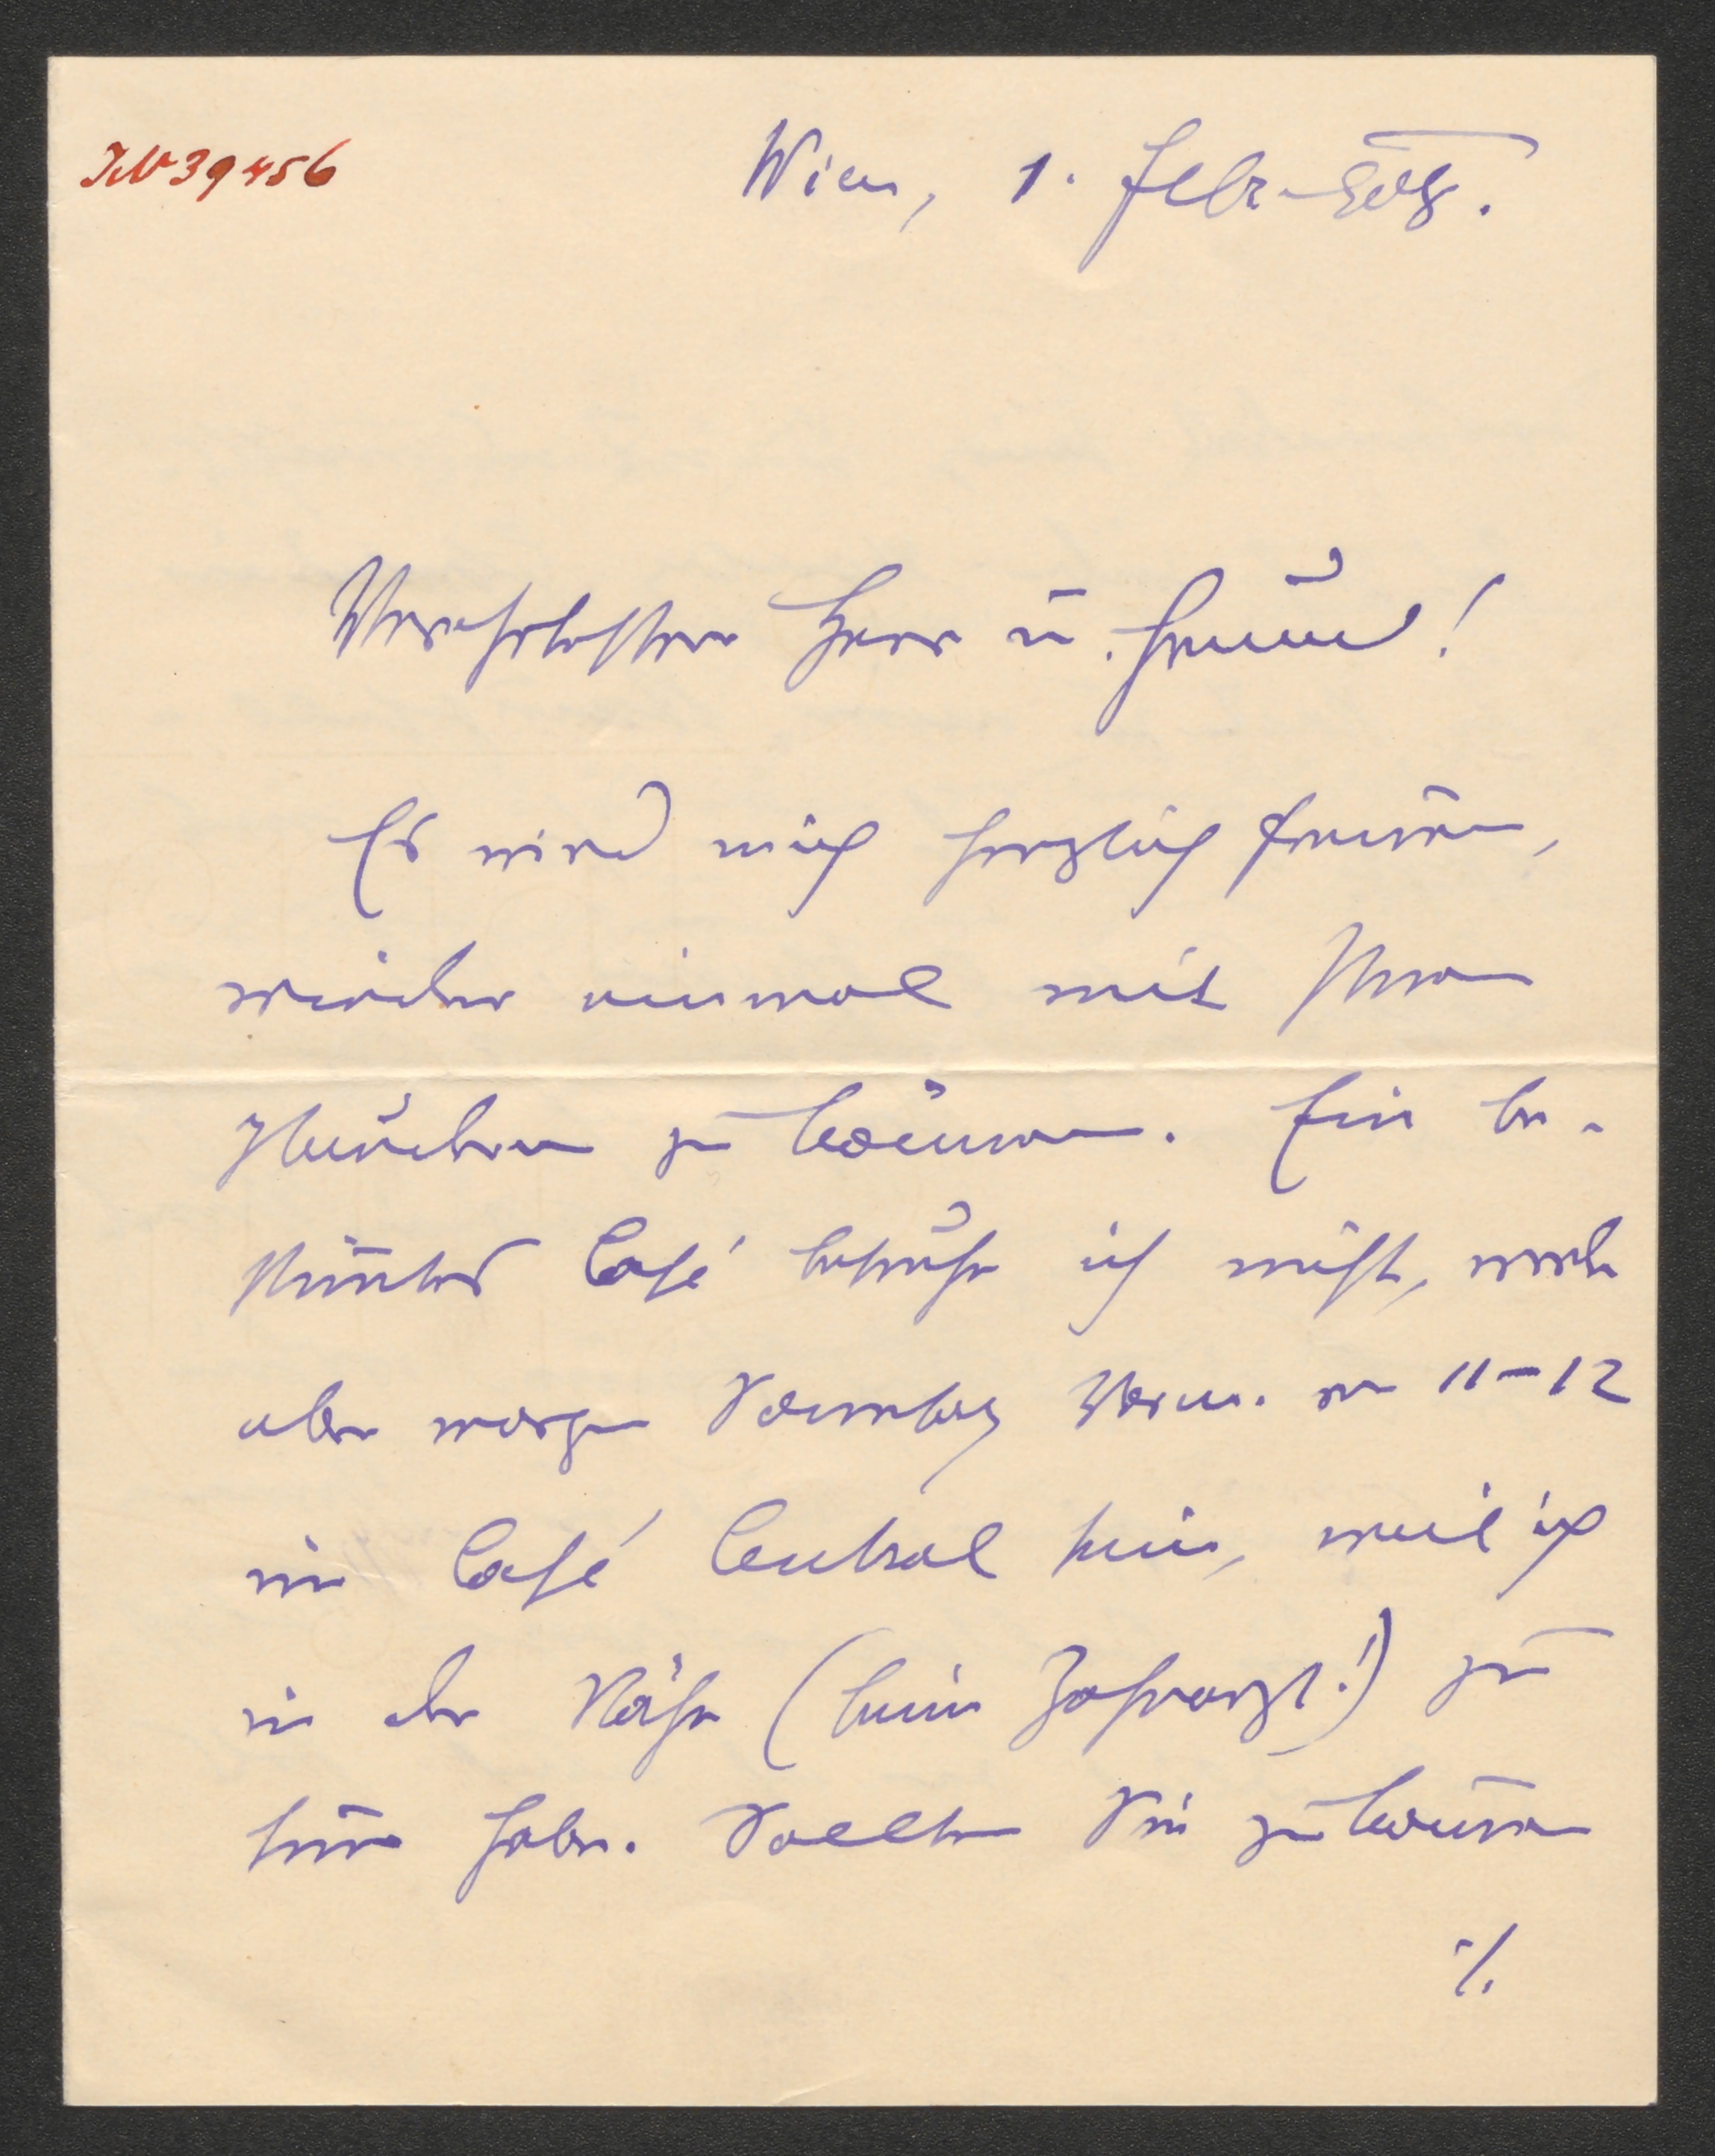 IN 39456
Wien, 1. Febr.
Verehrtester Herr u. Freund!
Es wird mich herzlich freuen,
wieder einmal mit Ihnen
plaudern zu können. Ein be-
stimmtes Café besuche ich nicht, werde
aber morgen Sonntag Vorm. von 11–12
im Café Central sein, weil ich
in der Nähe (beim Zahnarzt!) zu
tun habe. Sollten Sie zu